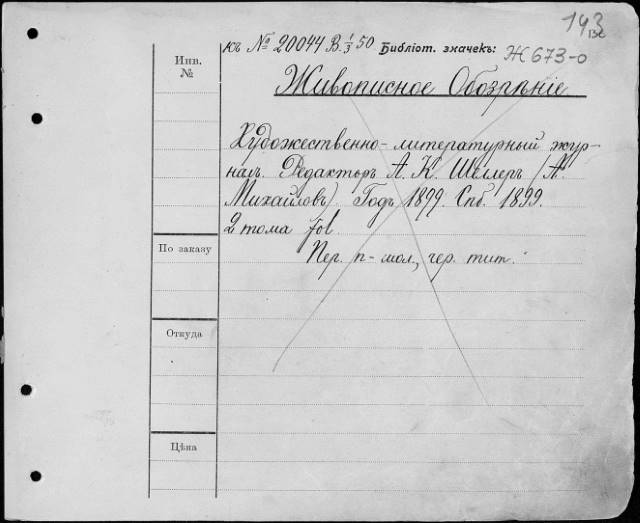 143
132
къ № 20044 В. 1/3 50. Библіот. значекъ: Ж673-0
Инв.
№
Живописное Обозрѣніе
Художественно-литературный жур-
налъ. Редакторъ А. К. Шеллеръ (А.
Михайловъ). Годъ 1899. Спб. 1899.
2 тома fol.
По заказу
Пер. п-шол., чер. тит.
Откуда
Цѣна